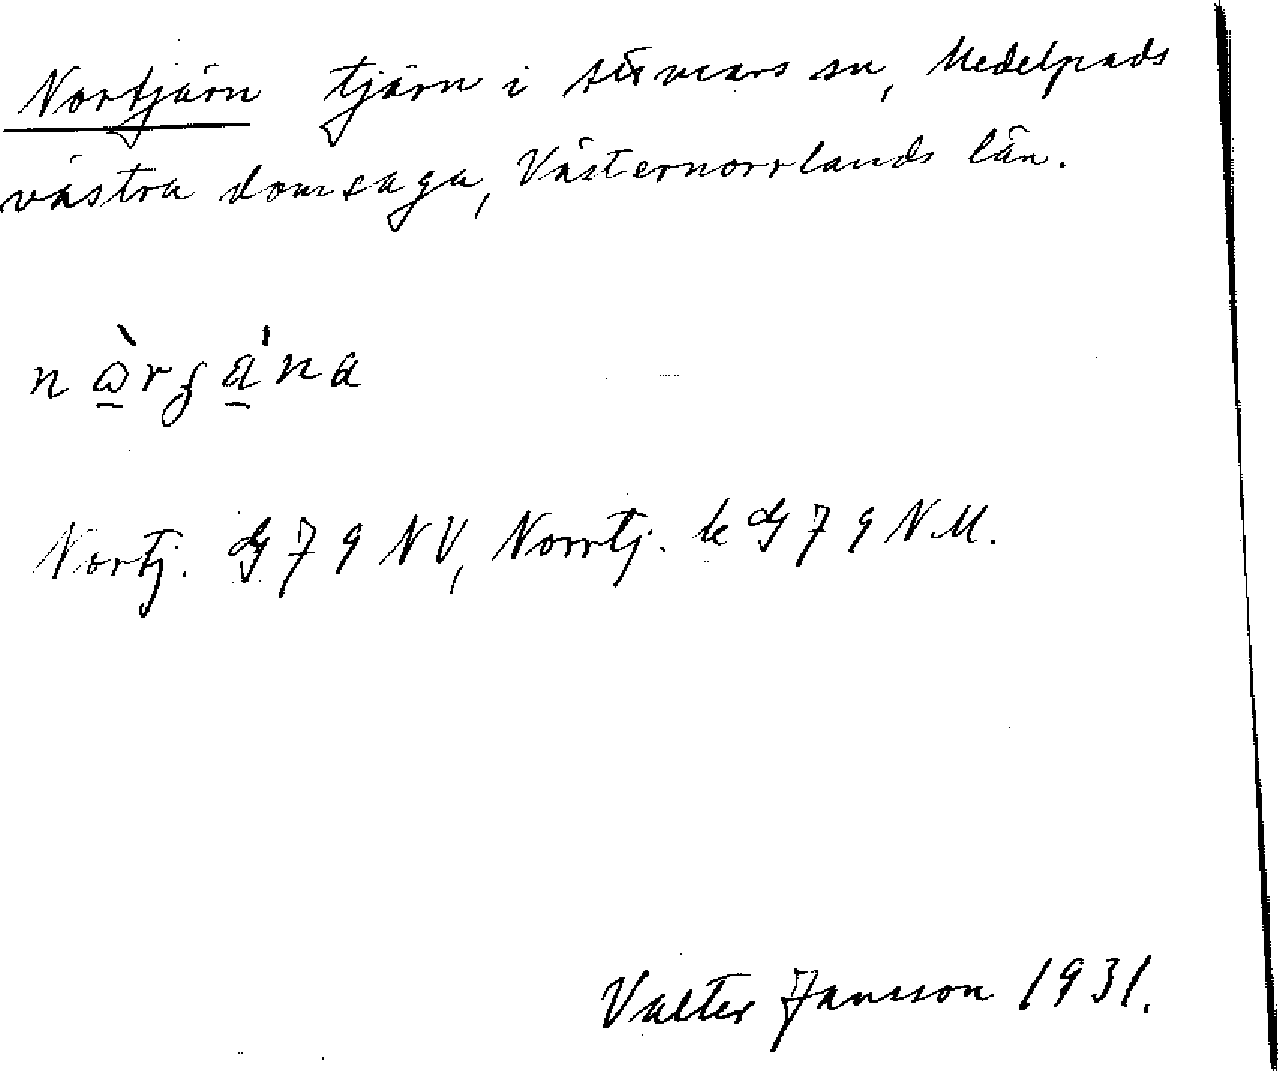 Nortjärn tjärn i Attmars sn, Medelpads
västra domsaga, Västernorrlands län.
Nortj. G 79 NV, Norrtj. k G 79 N.M.
Valter Jansson 1931.